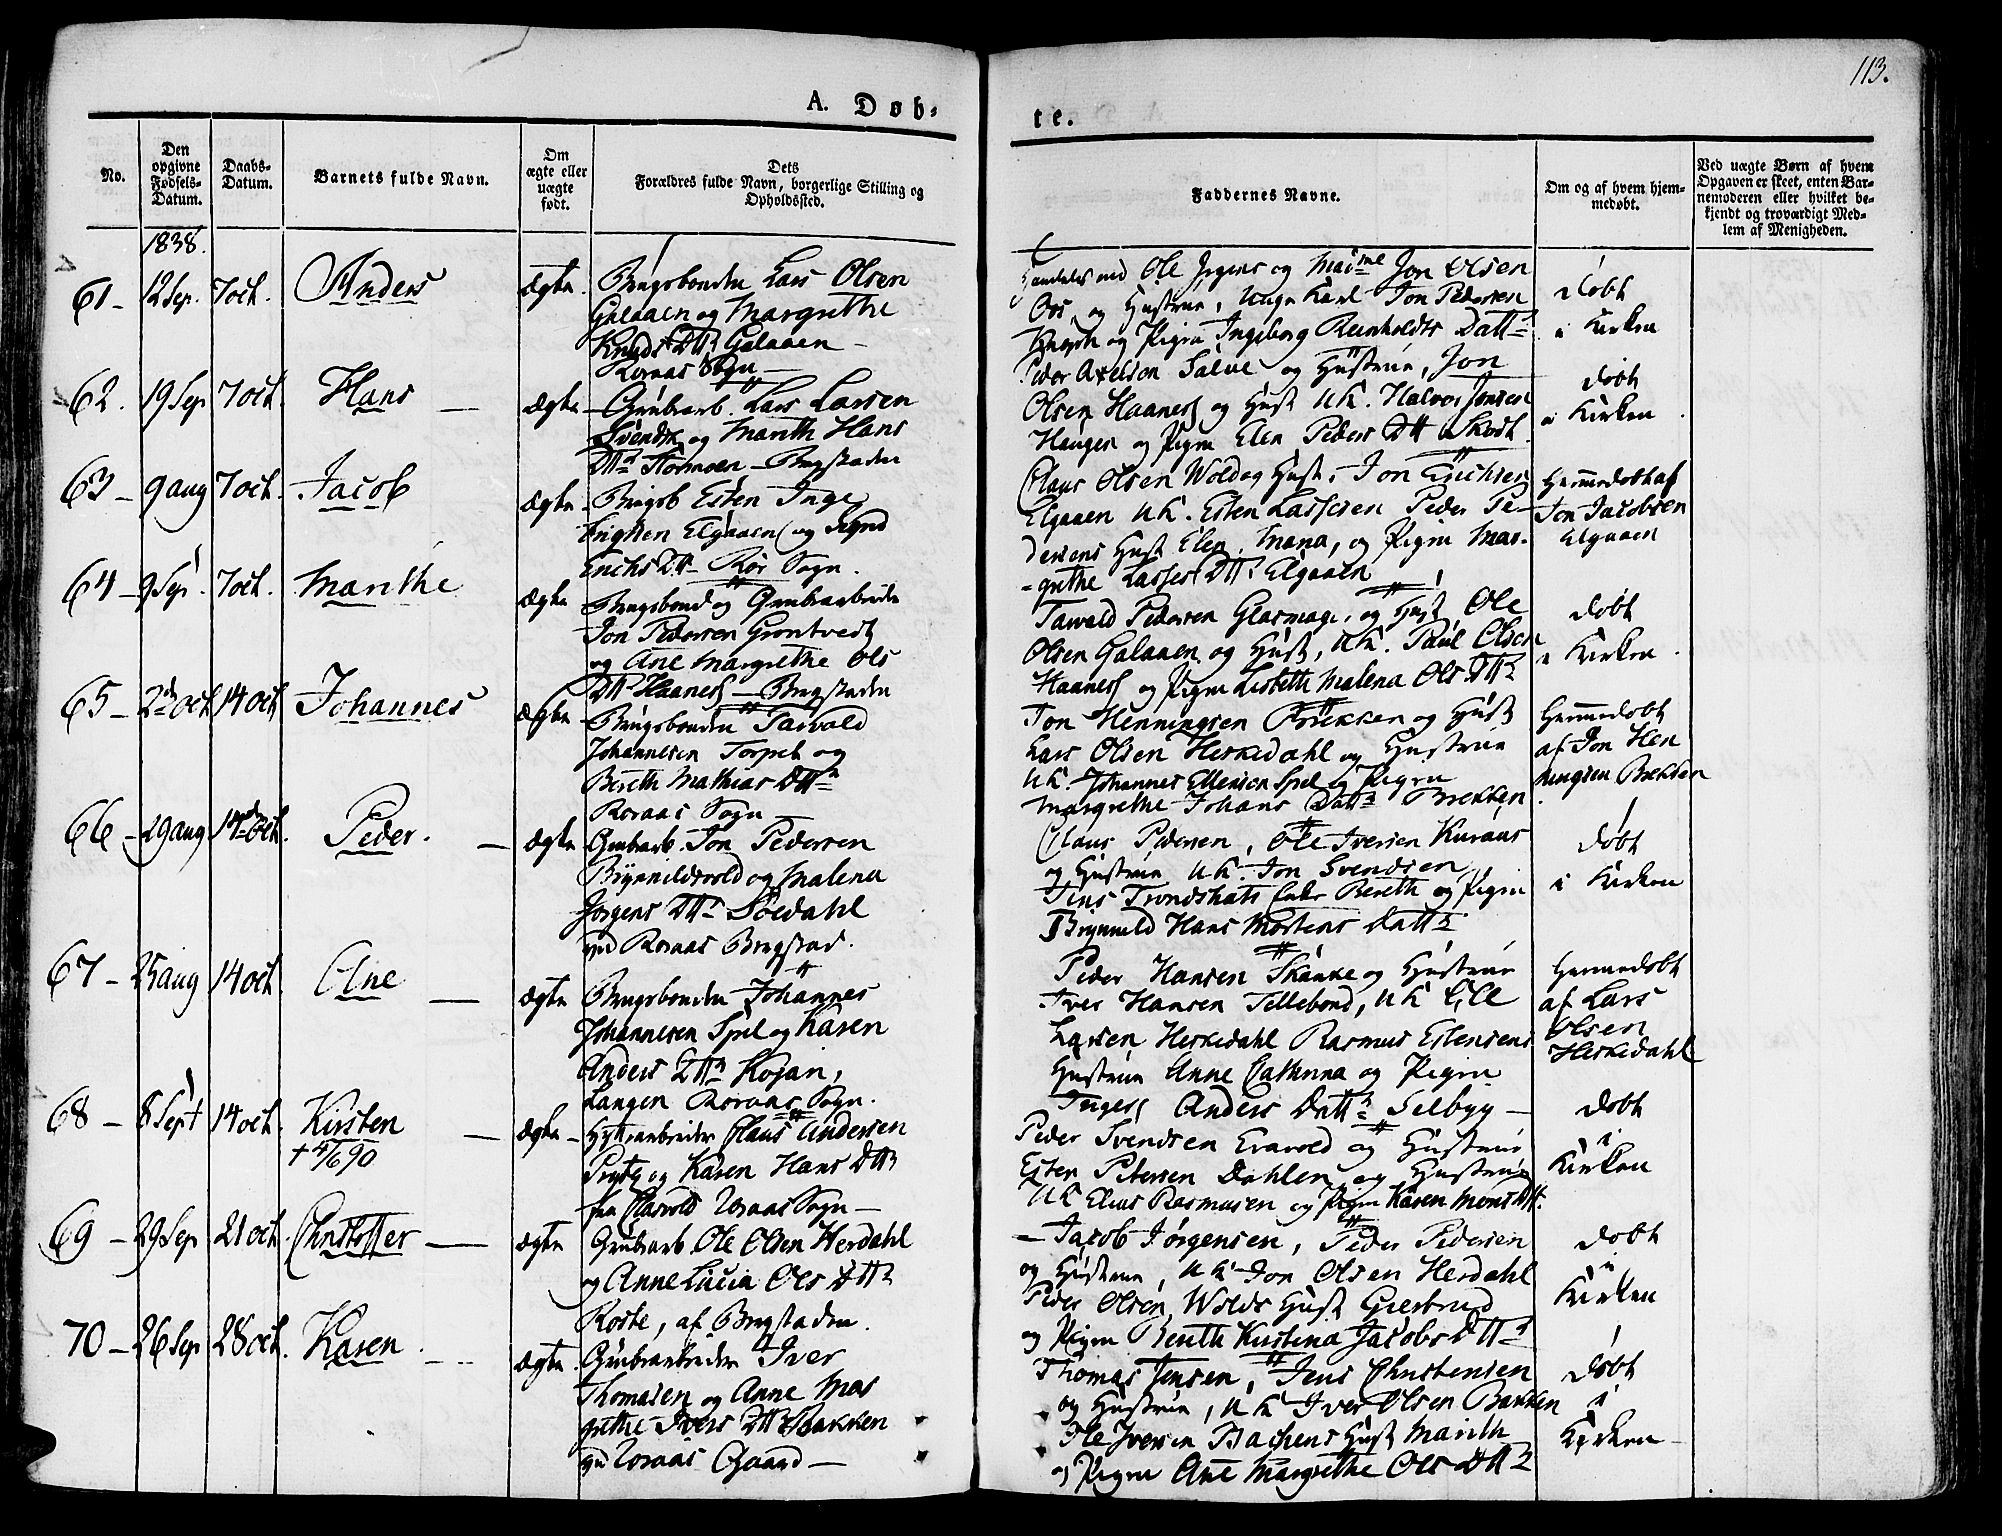 113.
A. Døb-
te.
No.
Den opgivne Fødsels-Datum.
Daabs-Datum.
Barnets fulde Navn.
Om ægte eller uægte født.
Dets Forældres fulde Navn, borgerlige Stilling og Opholdssted.
Faddernes Navne.
Om og af hvem hjem-medøbt.
Ved uægte Børn af hvem Opgaven er skeet, enten Bar-nemoderen eller hvilket be-kjendt og troværdigt Med-lem af Menigheden.
1838.
61 - 12 Sep. 7 oct. Anders ægte.
Brugsbonden Lars Olsen
Galaaen og Margrethe
Knuds Dttr Galaaen -
Roraas Sogn -
Ole Jrgens og Mad me Jon Olsen
Os og Hustrue, Unge Karl Jon Pedersen
og Pigen Ingeborg Reinholdts Dattr
døbt
i Kirken
62. 19 Sep 7 oct. Hans - ægte -
Grubearb. Lars Larsen
Svendsk og Marith Hans
Dttr Stormoen - Bergstaden
Peder Axelson Salve og Hustrue, Jon
Olsen Haanes og Hust UK. Halvor Jonsen
Haugen og Pigen Elen Peders Dtt
døbt
i Kirken
63 - 9 aug 7 oct. Jacob ægte
Brugsb Esten Inge
brigtsen Elgaaen og Sigrid
Erichs Dtt - Rør. Sogn.
Claus Olsen Wold og Hust. Jon Erichsen
Elgaaen UK. Esten Lassesen Peder Pe-
dersens Hust Elen. Mana, og Pigen Mar-
-grethe Lasses Dttr Elgaaen
Hjemmedøbt af
Jon Jacobsen
Elgaaen
64 - 9 Sep. 7 oct. Marithe ægte
Brugsbond og Grubearbeider
Jon Pedersen Grontvedt
og Ane Margrethe Ols
Dttr Haanes - Bergstaden
Tarvald Pedersen Glasmager, og Hust Ole
Olsen Galaaen og Hust, UK. Paul Olsen
Haanes og Pigen Lisbeth Malena Ols Dttr
døbt
i Kirken.
65 - 2 oct 14 oct Johannes ægte
Brugsbonden Tarvald
Johannesen Torpet og
Bereth Mathias Dttr
Roraas Sogn
Jon Henningsen Brekken og Hust
Lars Olsen Herkedahl og Hustrue
UK. Johannes Ellensen Spel og Pigen
Margrethe Johans Dattr Brekken
Hjemmedøbt
af Jon Hen
ningsen Brekken
66 - 29 aug 14 oct. Peder. - ægte
Grubearb. Jon Pedersen
Brynildsvold og Malena
Jørgens Dttr Søedahl
ved Roraas Bergstad.
Claus Pedersen, Ole Iversen Kuraas
og Hustrue UK. Jon Svendsen
Jens Trondshats Enke Bereth og Pigen
Brynnild Hans Mortens Dattr
døbt
i Kirken
67 - 25 aug 14 oct. Ane - ægte
Brugsbonden Johannes
Johannesen Spel og Karen
Anders Dttr Kojan,
Langen Roraas Sogn.
Peder Hansen Skanke og Hustrue
Iver Hansen Tellebond, UK Ole
Larsen Herkedahl Rasmus Estensens
Hustrue Anne Cathrina og Pigen
Inger Anders Dattr Selbyg -
Hjemmedøbt
af Lars
Olsen
Herkedahl
68 - 8 Sept 14 oct. Kirsten - ægte -
+ 4/6 90
Hyttearbeider Claus Andersen
Prytz og Karen Hans Dttr
fra Roraas Sogn -
Peder Svendsen Evavold og Hustrue
Esten Petersen Dahlen og Hustrue
UK Elias Rasmusen og Pigen Karen Mons Dtt.
døbt
i
Kirken
69 - 29 Sep 21 oct. Christoffer - ægte
Grubearb. Ole Olsen Herdahl
og Anne Lucia Ols Dttr
Roste, af Bergstaden.
- Jacob Jørgensen, Peder Pedersen
og Hustrue, UK Jon Olsen Herdahl
Peder Olsen Wolds Hust Giertrud
og Pigen Berith Kirstina Jacobs Dttr
døbt
i
Kirken
70 - 26 Sep 28 oct. Karen ægte.
Grubearbeider Iver
Thomasen og Anne Mar
grethe Ivers Dttr Bakken
ved Roraas Gaard -
Thomas Jensen, Jens Christensen
og Hustrue, UK Iver Olsen Bakken
Ole Iversen Bachens Hust Marith
og Pigen Ane Margrethe Ols Dttr
døbt
i
Kirken